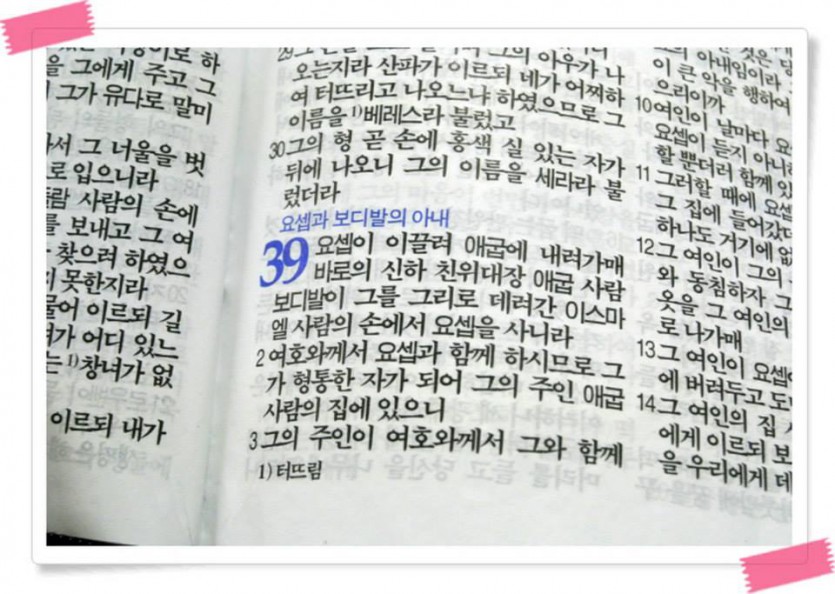 을 그에게 주고 그
그가 유다로 말미
서 그 너울을 벗
로 입으니라
사람의 손에
를 보내고 그 여
찾으러 하였으
못한지라
물어 이르되 길
가 어디 있느
는 1)창녀가 없
이르되 내가
오는지라 산파가 이르되 네가 어찌하
여 터뜨리고 나오느냐 하였으므로 그
이름을 1)베레스라 불렀고
30 그의 형 곧 손에 홍색 실 있는 자가
뒤에 나오니 그의 이름을 세라라 불
렀더라
요셉과 보디발의 아내
39 요셉이 이끌려 애굽에 내려가매
바로의 신하 친위대장 애굽 사람
보디발이 그를 그리로 데려간 이스마
엘 사람의 손에서 요셉을 사니라
2 여호와께서 요셉과 함께 하시므로 그
가 형통한 자가 되어 그의 주인 애굽
사람의 집에 있으니
3 그의 주인이 여호와께서 그와 함께
1) 터뜨림
그의 아내임이라 그
이 큰 악을 행하여
으리이까
10 여인이 날마다 요
요셉이 듣지 아니하
할 뿐더러 함께 있
11 그러할 때에 요셉
그 집에 들어갔더
하나도 거기에 없
12 그 여인이 그의
와 동침하자 그
옷을 그 여인의
로 나가매
13 그 여인이 요셉이
에 버려두고 도
14 그 여인의 집
에게 이르되 보
을 우리에게 데